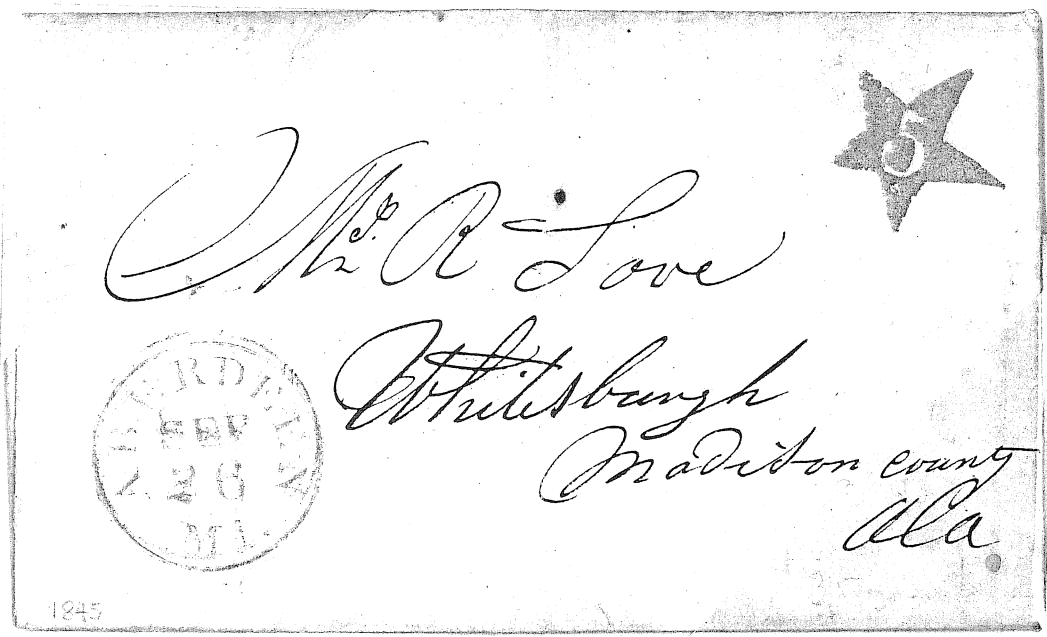 5
Mr. R Love
Whitesburgh
Madison county
Ala
ABERDEEN
SEP
26
MI.
1845